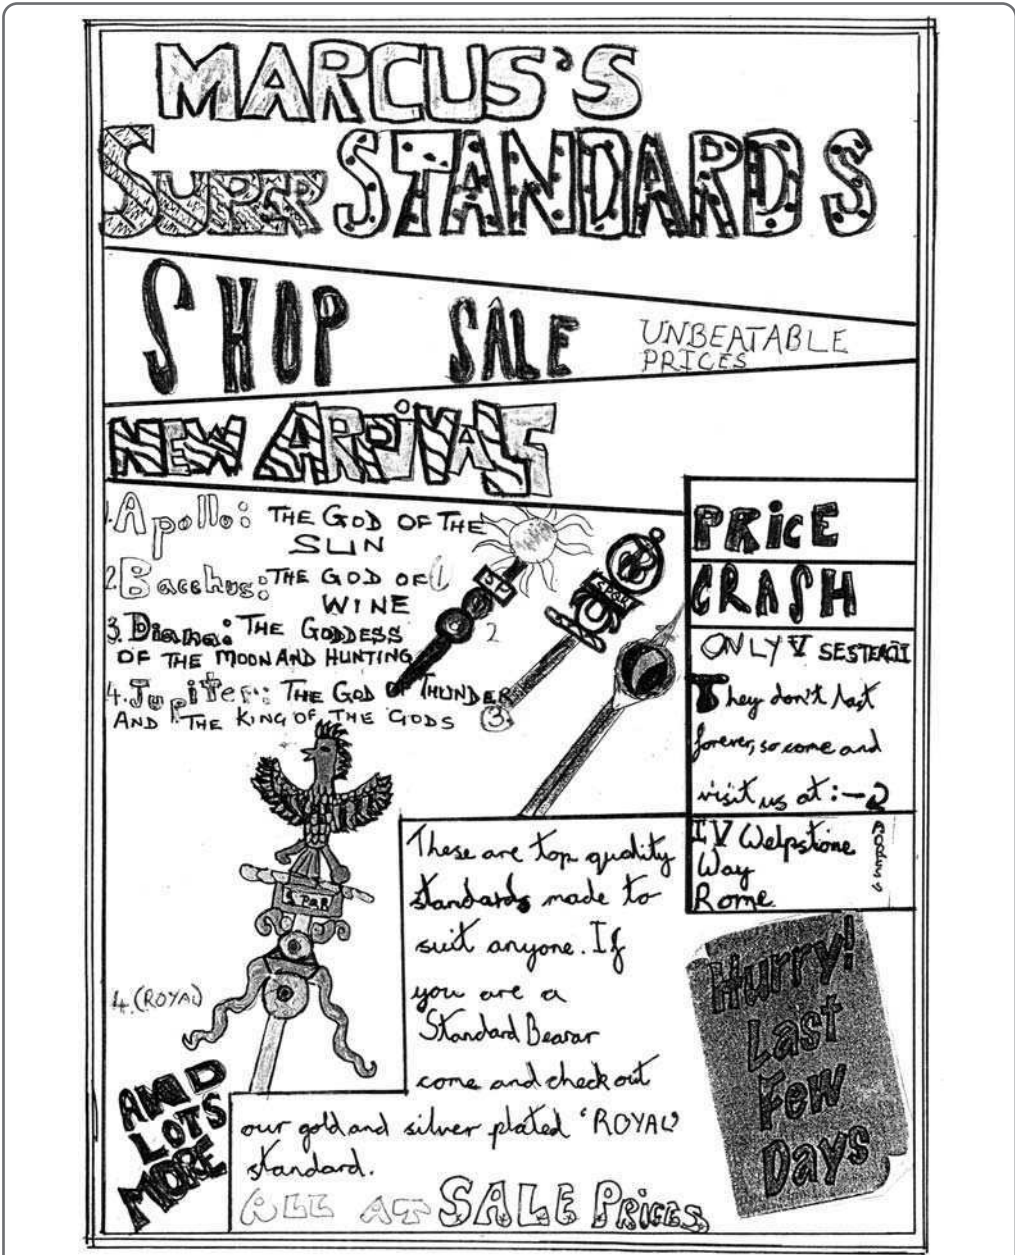 MARCUS'S
SUPER STANDARDS
SHOP SALE UNBEATABLE
PRICES
NEW ARRIVALS
1. Apollo: THE GOD OF THE
SUN
2. Bacchus: THE GOD OF
WINE
3. Diana: THE GODDESS
OF THE MOON AND HUNTING
4. Jupiter: THE GOD OF THUNDER
AND THE KING OF THE GODS
1
2
3.
SPQR
4. (ROYAL)
SPQR
AND
LOTS
MORE
PRICE
CRASH
ONLY V SESTERCII
They don't last
forever, so come and
visit us at :-
IV Welpstone
Way
Rome
ADDRESS
These are top quality
standards made to
suit anyone. If
you are a
Standard Bearar
come and check out
our gold and silver plated 'ROYAL'
standard.
ALL AT SALE PRICES
Hurry!
Last
Few
Days